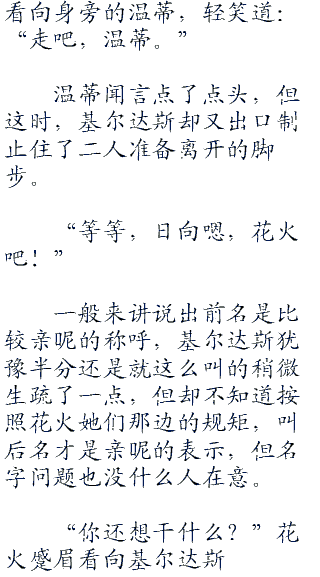 看向身旁的温蒂，轻笑道：
“走吧，温蒂。”
温蒂闻言点了点头，但
这时，基尔达斯却又出口制
止住了二人准备离开的脚
步。
“等等，日向嗯，花火
吧！”
一般来讲说出前名是比
较亲呢的称呼，基尔达斯犹
豫半分还是就这么叫的稍微
生疏了一点，但却不知道按
照花火她们那边的规矩，叫
后名才是亲呢的表示，但名
字问题也没什么人在意。
“你还想干什么？”花
火蹙眉看向基尔达斯